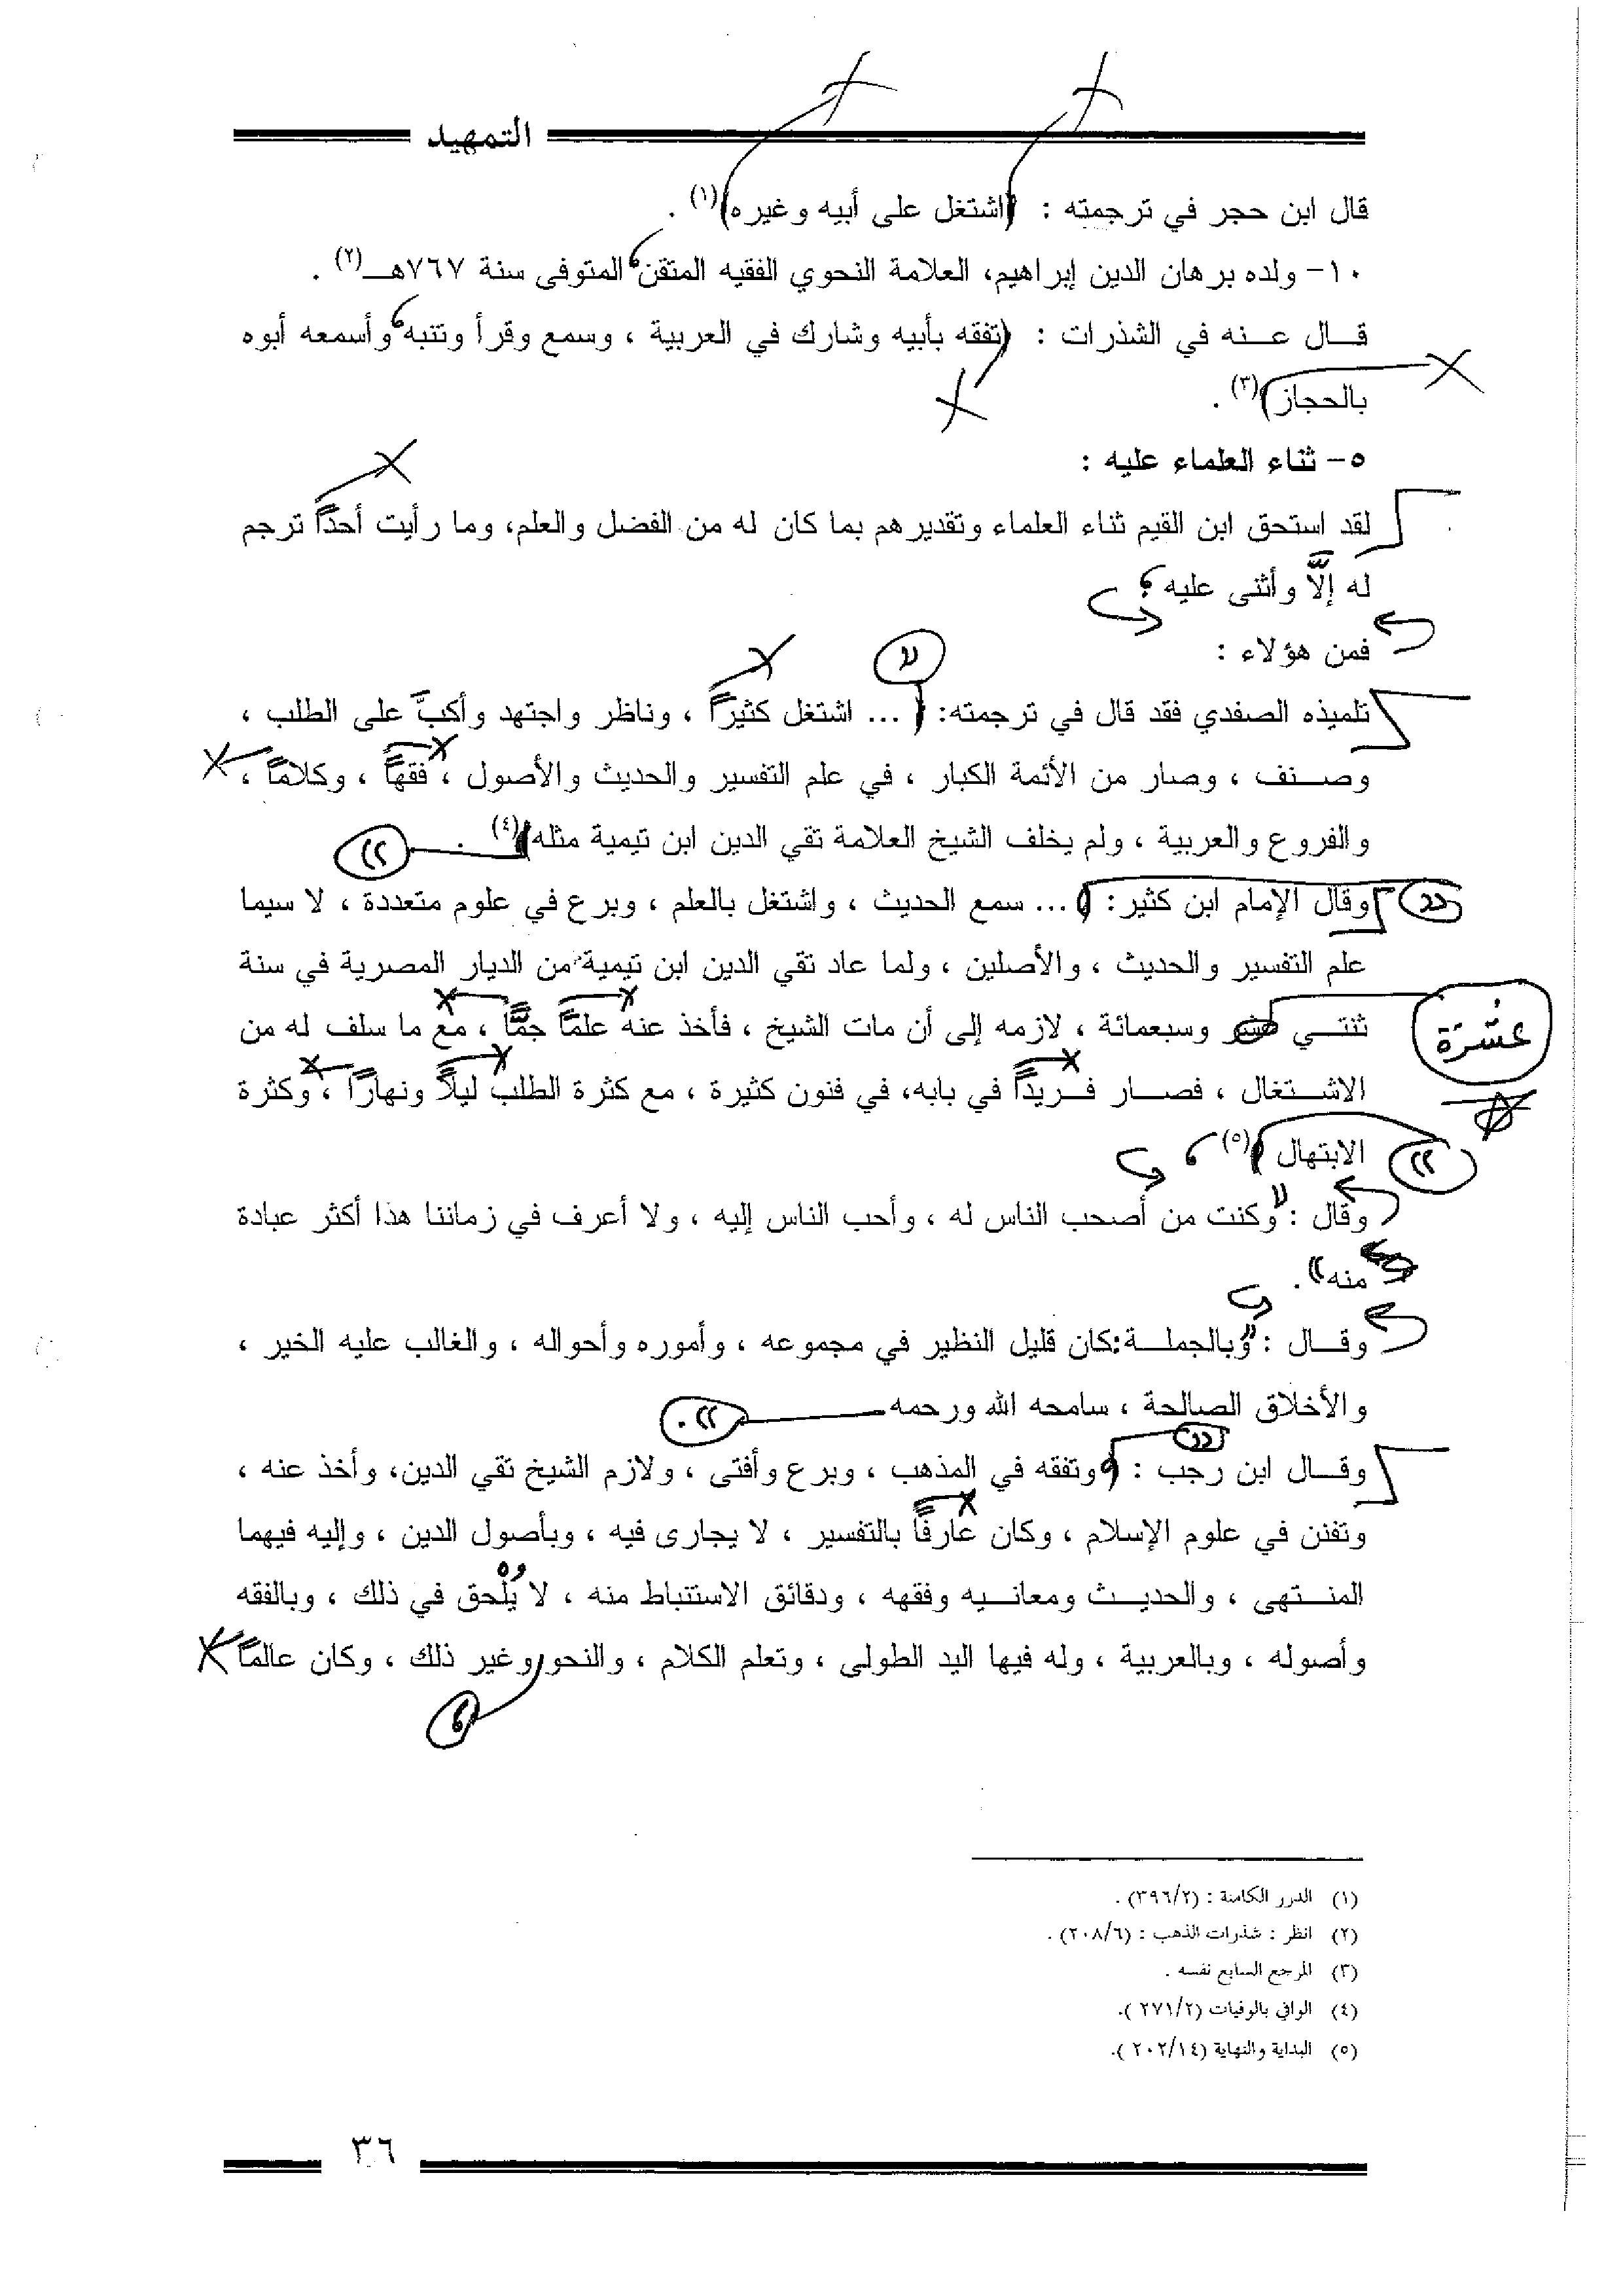 التمهيد
قال ابن حجر في ترجمته : (اشتغل على أبيه وغيره)(١) .
١٠- ولده برهان الدين إبراهيم، العلامة النحوي الفقيه المتقن، المتوفى سنة ٧٦٧هـ(٢) .
قال عنه في الشذرات : (تفقه بأبيه وشارك في العربية ، وسمع وقرأ وتنبه، وأسمعه أبوه
بالحجاز)(٣) .
٥- ثناء العلماء عليه :
لقد استحق ابن القيم ثناء العلماء وتقديرهم بما كان له من الفضل والعلم، وما رأيت أحداً ترجم
له إلَّا وأثنى عليه ؛
فمن هؤلاء :
تلميذه الصفدي فقد قال في ترجمته: ( ... اشتغل كثيراً ، وناظر واجتهد وأكبَّ على الطلب ،
وصنف ، وصار من الأئمة الكبار ، في علم التفسير والحديث والأصول ، فقهاً ، وكلاماً ،
والفروع والعربية ، ولم يخلف الشيخ العلامة تقي الدين ابن تيمية مثله)(٤) .
))
وقال الإمام ابن كثير: ( ... سمع الحديث ، واشتغل بالعلم ، وبرع في علوم متعددة ، لا سيما
))
علم التفسير والحديث ، والأصلين ، ولما عاد تقي الدين ابن تيمية من الديار المصرية في سنة
ثنتي عشر وسبعمائة ، لازمه إلى أن مات الشيخ ، فأخذ عنه علماً جمًّا ، مع ما سلف له من
عشْرَة
الاشتغال ، فصار فريداً في بابه، في فنون كثيرة ، مع كثرة الطلب ليلاً ونهاراً ، وكثرة
الابتهال )(٥) ،
))
وقال : "وكنت من أصحب الناس له ، وأحب الناس إليه ، ولا أعرف في زماننا هذا أكثر عبادة
منه)) .
وقال : "وبالجملة:كان قليل النظير في مجموعه ، وأموره وأحواله ، والغالب عليه الخير ،
والأخلاق الصالحة ، سامحه الله ورحمه )) .
وقال ابن رجب : (وتفقه في المذهب ، وبرع وأفتى ، ولازم الشيخ تقي الدين، وأخذ عنه ،
وتفنن في علوم الإسلام ، وكان عارفاً بالتفسير ، لا يجارى فيه ، وبأصول الدين ، وإليه فيهما
المنتهى ، والحديث ومعانيه وفقهه ، ودقائق الاستنباط منه ، لا يُلْحق في ذلك ، وبالفقه
وأصوله ، وبالعربية ، وله فيها اليد الطولى ، وتعلم الكلام ، والنحو وغير ذلك ، وكان عالماً
،
(١) الدرر الكامنة : (٣٩٦/٢) .
(٢) انظر : شذرات الذهب : (٢٠٨/٦) .
(٣) المرجع السابع نفسه .
(٤) الوافي بالوفيات (٢٧١/٢ ).
(٥) البداية والنهاية (٢٠٢/١٤ ).
٣٦